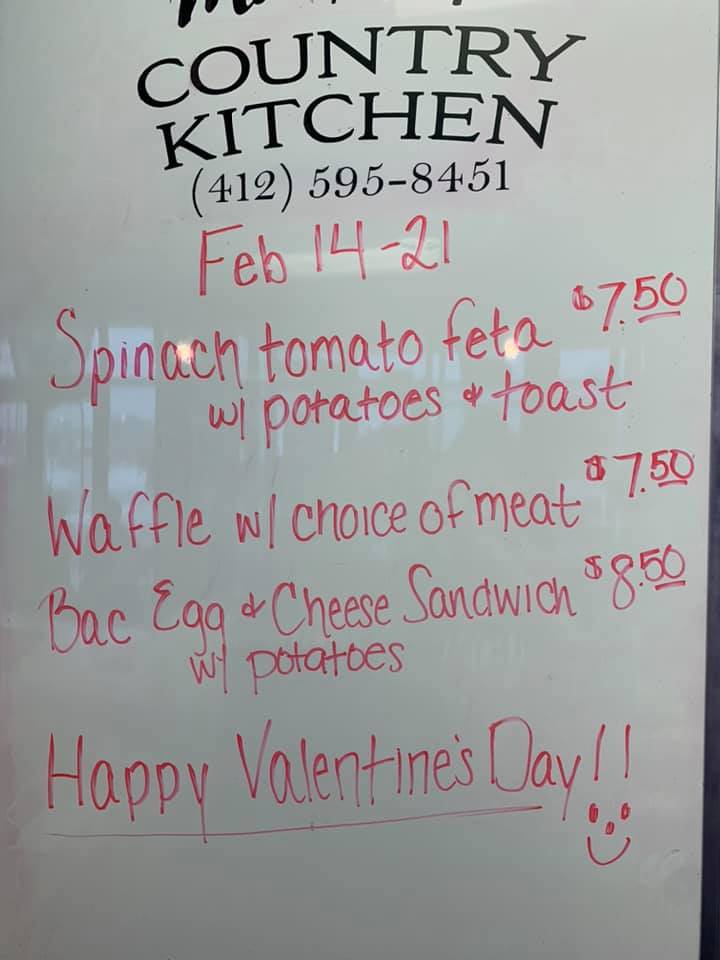 COUNTRY
KITCHEN
(412) 595-8451
Feb 14-21
Spinach tomato feta $7.50
w/ potatoes & toast
Waffle w/ choice of meat $7.50
Bac Egg & Cheese Sandwich $8.50
w/ potatoes
Happy Valentine's Day!!